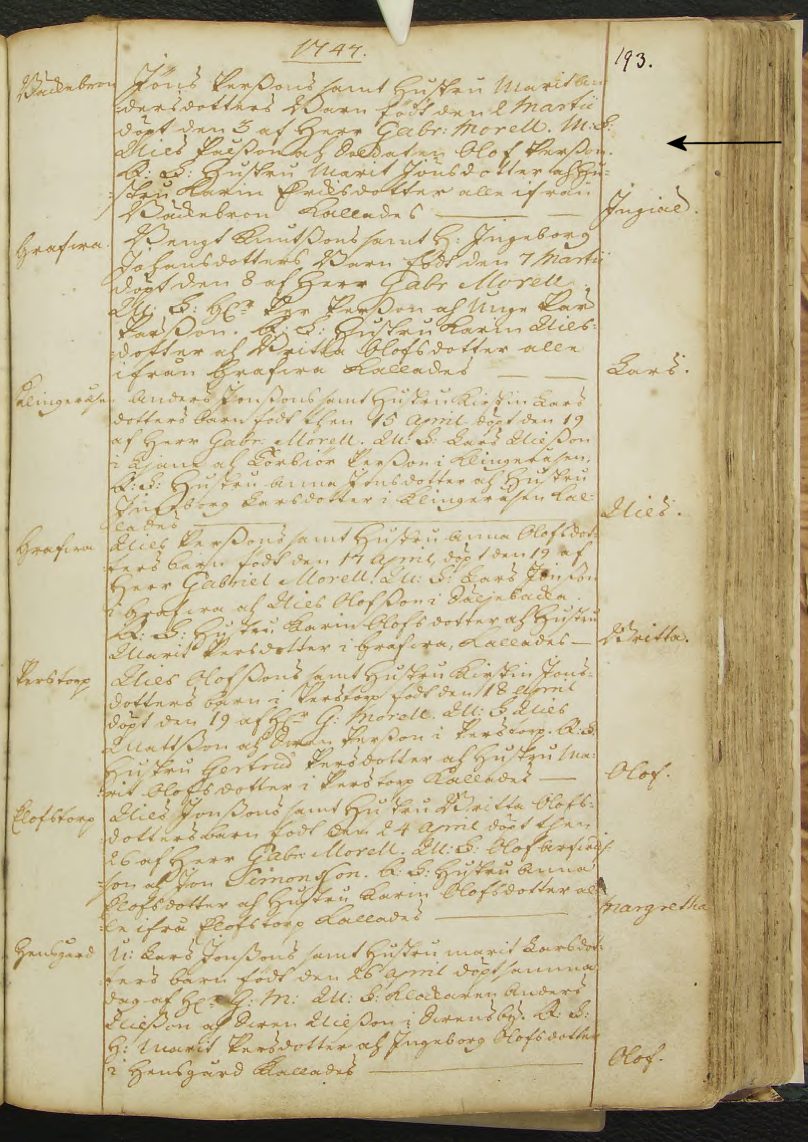 1747.
193.
Wadebron
Jöns Perßons samt Hustru Marit An
dersdotters Barn födt den 2 Martii
döpt den 3 af Herr Gabr: Morell. M: F:
Nils Nilsson och Soldaten Olof Perßon.
Q: F: Hustru Marit Jonsdotter och Hu-
stru Karin Ersdotter alle ifrån
Wadebron Kallades
Ingiäl.
Grafira.
Bengt Knutßons samt H: Ingeborg
Johansdotters Barn födt den 7 Martii
döpt den 8 af Herr Gabr Morell.
M: F: Hr Per Perßon och Unge Pär
Pärßon. Q: F: Hustru Karin Nils-
dotter och Britta Olofsdotter alle
ifrån Grafira Kallades
Lars.
Klingeråsen
Anders Jonßons samt Hustru Kirstin Lars
dotters barn födt then 15 April döpt den 19
af Herr Gabr. Morell. M: F: Lars Nilßon
i och Torbiör Perßon i Klingeråsen.
Q: F: Hustru Anna Jonsdotter och Hustru
Ingeborg Larsdotter i Klingeråsen Kal-
lades
Nils.
Grafira
Nils Perßons samt Hustru Anna Olofsdot-
ters barn födt den 17 April, döpt den 19 af
Herr Gabriel Morell. M: F: Lars Jonßon
i Grafira och Nils Olofßon i Däljebacka.
Q: F: Hustru Karin Olofsdotter och Hustru
Marit Persdotter i Grafira, Kallades
Britta.
Perstorp
Nils Olofßons samt Hustru Kirstin Jons-
dotters barn i Perstorp födt den 18 April
döpt den 19 af Hr G: Morell. M: F Nils
Mattßon och Swen Perßon i Perstorp. Q: F:
Hustru Gertrud Persdotter och Hustru Ma-
rit Olofsdotter i Perstorp Kallades
Olof.
Elofstorp
Nils Jonßons samt Hustru Britta Olofs-
dotters barn födt den 24 April döpt then
26 af Herr Gabr Morell. M: F: Olof
son och Jon Simonsson. Q: F: Hustru Anna
Olofsdotter och Hustru Karin Olofsdotter al-
le ifrå Elofstorp Kallades
Margretha
Hensgård
U: Lars Jonßons samt Hustru Marit Larsdot-
ters barn födt den 26 April döpt samma
dag af Hr G: M: M: F: Klockaren Anders
Nilßon och Swen Nilßon i Swensby. Q: F:
H: Marit Persdotter och Ingeborg Olofsdotter
i Hensgård Kallades
Olof.